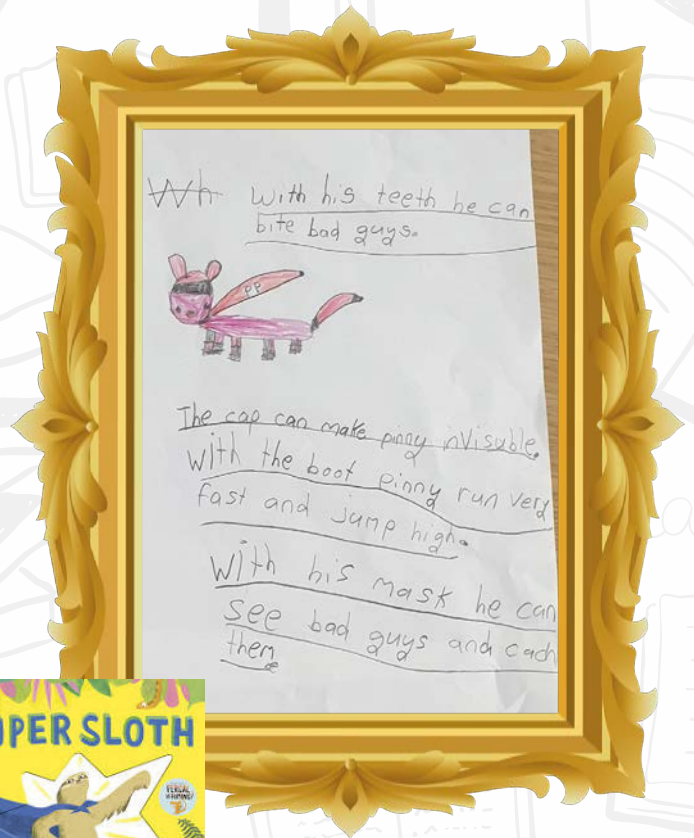 Wh With his teeth he can
bite bad guys.
PP
The cap can make pinny invisable.
With the boot pinny run very
fast and jump high.
With his mask he can
see bad guys and cach
them.
UPER SLOTH